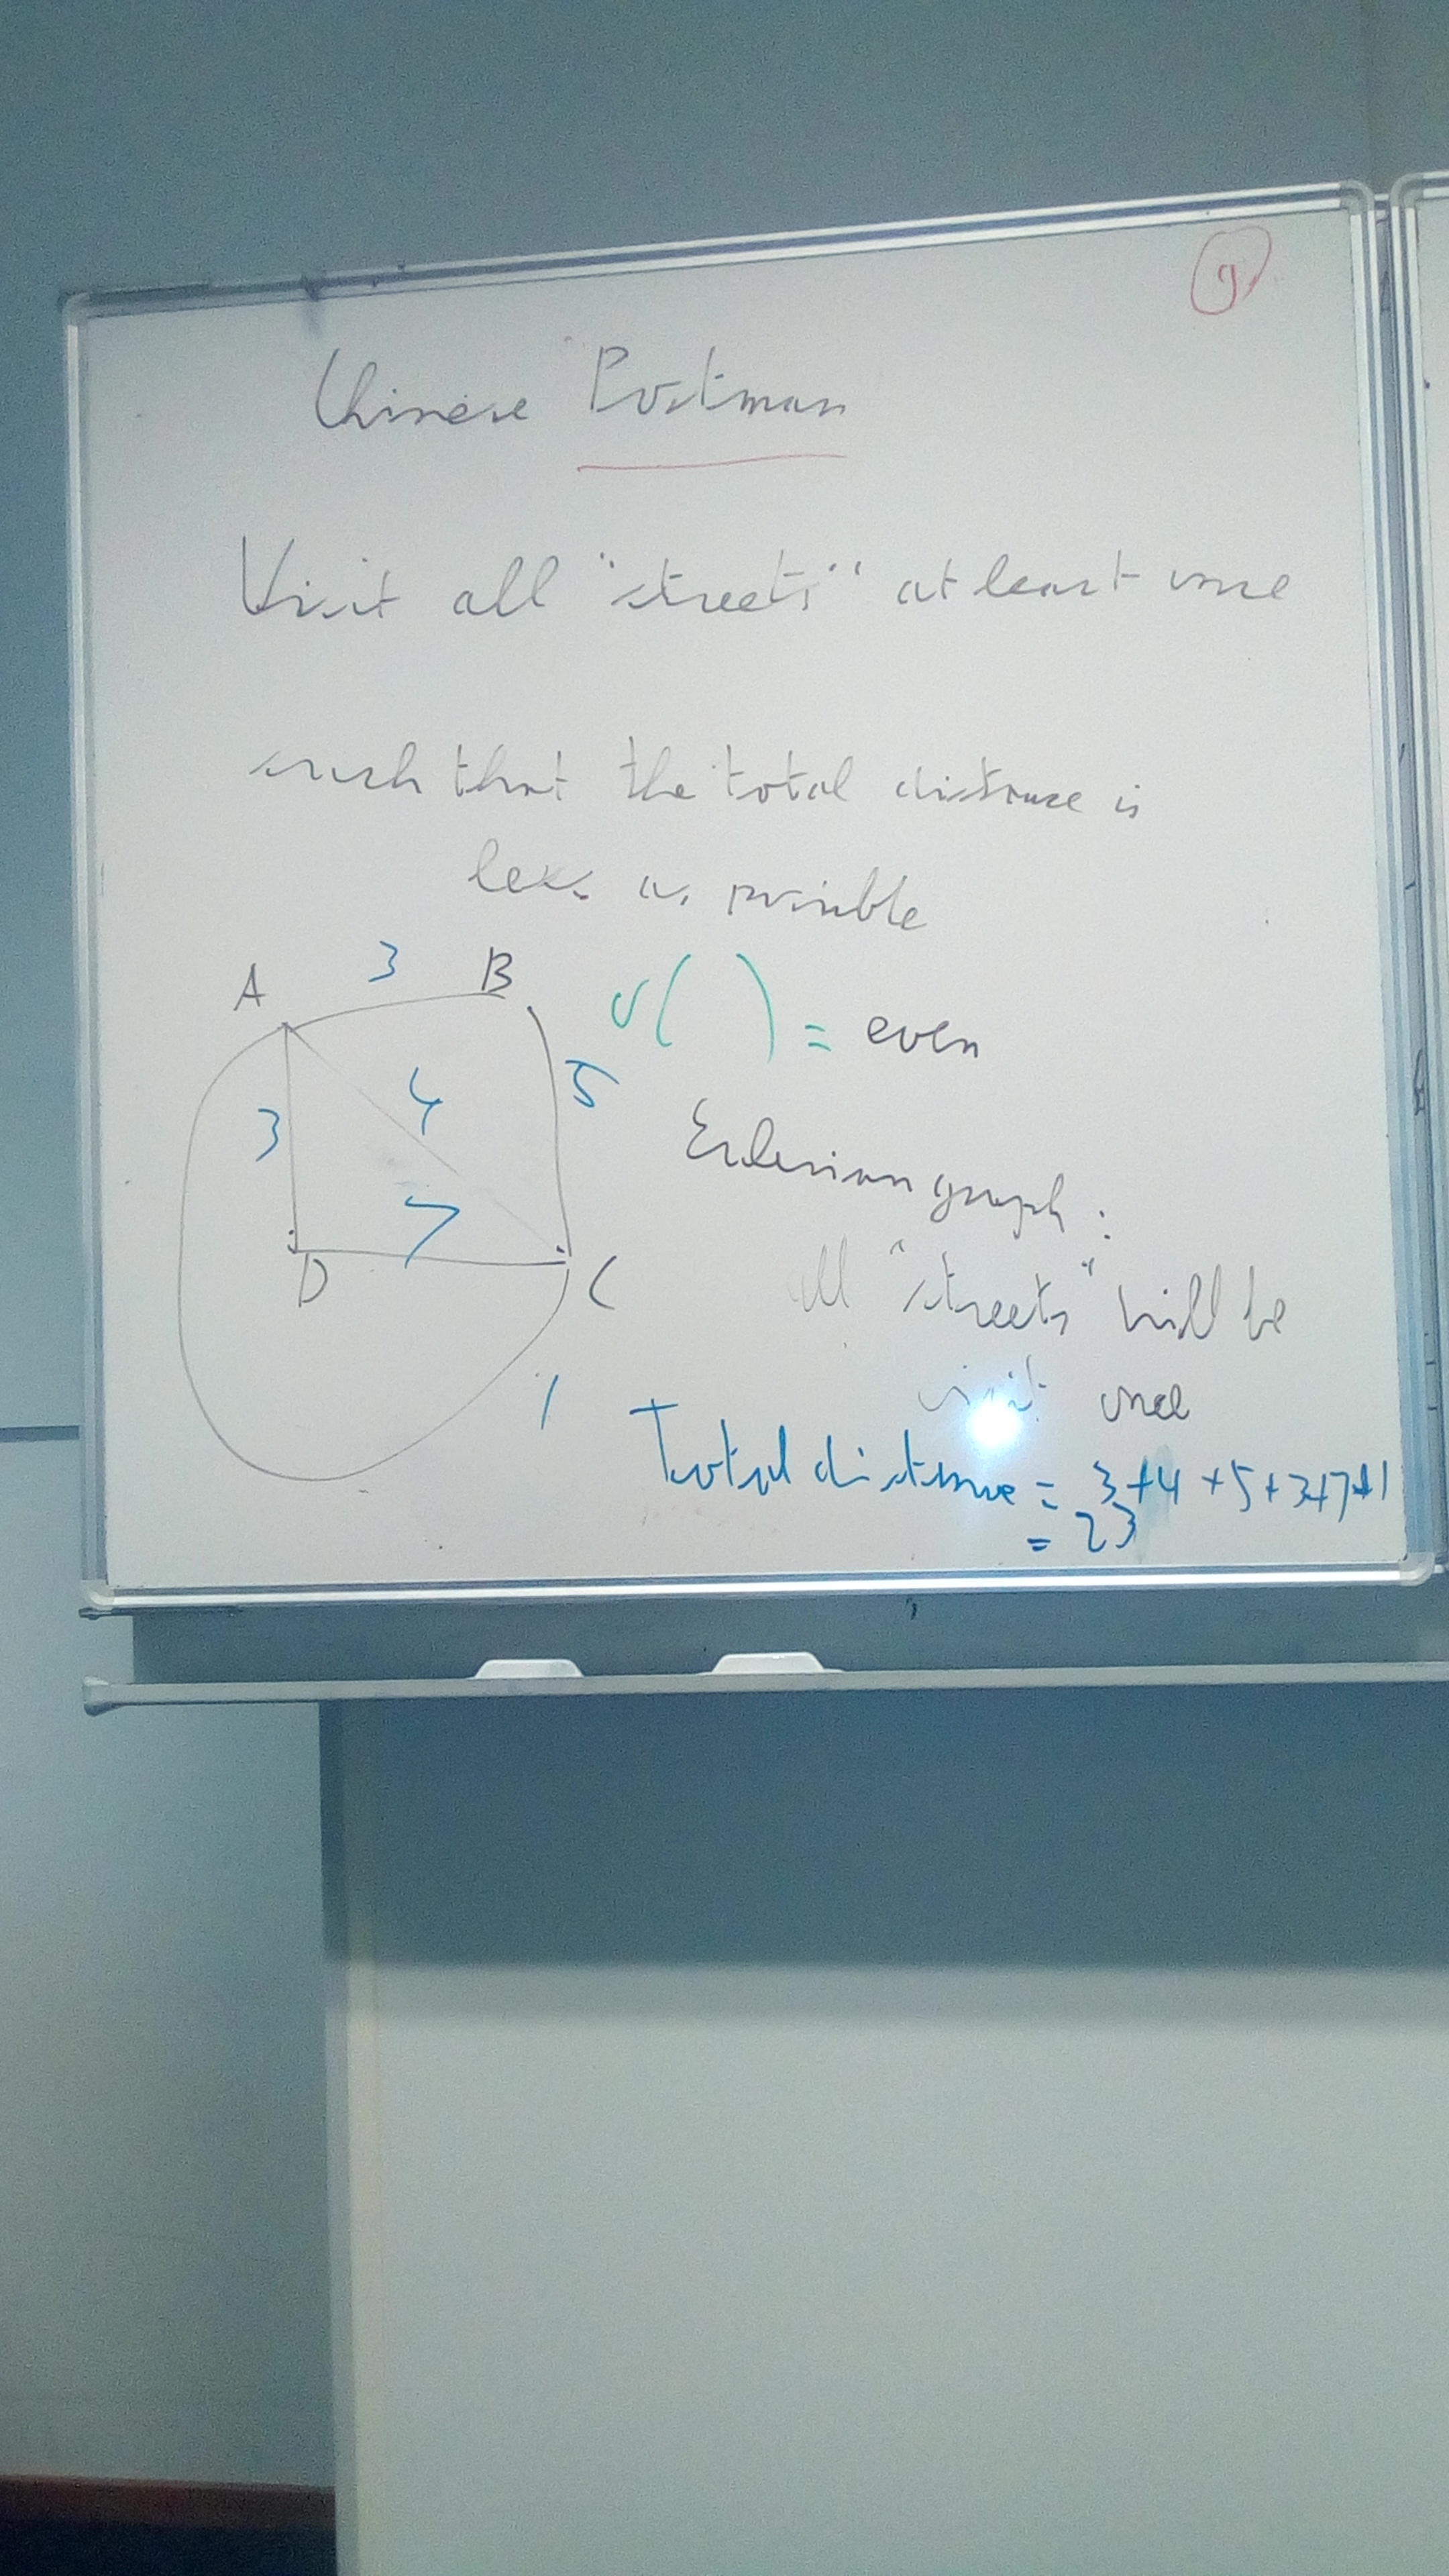 9
Chinese Postman
Visit all "streets" at least once
such that the total distance is
less as possible
A 3 B
v( ) = even
3 4 5
Eulerian graph :
7
D C
all "streets" will be
visit once
1
Total distance = 3+4+5+3+7+1
= 23